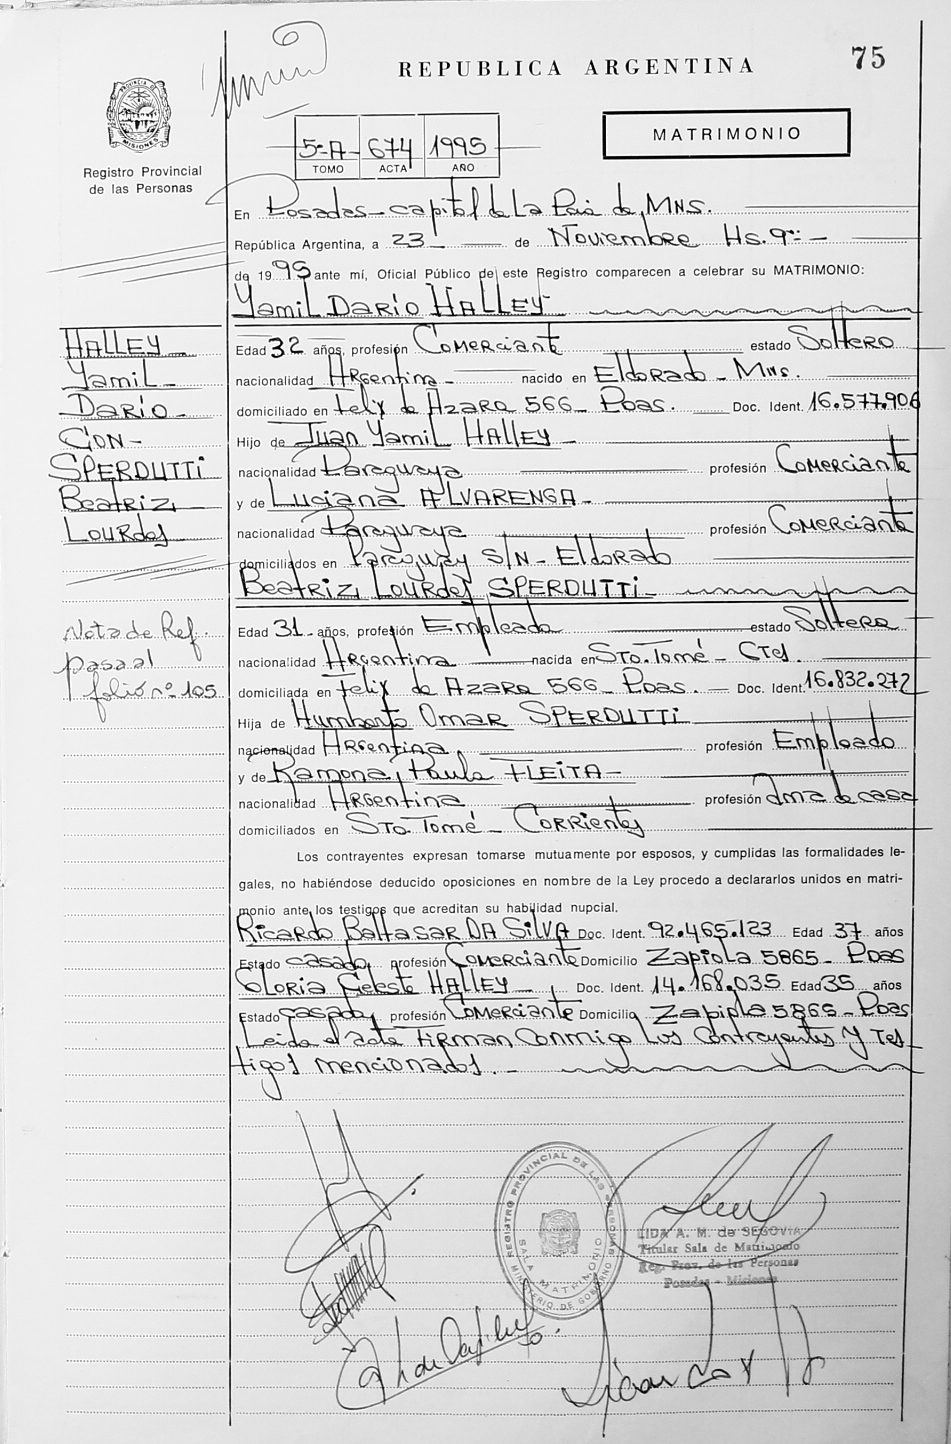 75
REPUBLICA ARGENTINA
PROVINCIA DE
MISIONES
Registro Provincial
de las Personas
5-A 674 1995
TOMO ACTA AÑO
MATRIMONIO
En Posadas - capital de La Pcia de, MNS.
República Argentina, a 23 de Noviembre Hs. 9
de 1995 ante mí, Oficial Público de este Registro comparecen a celebrar su MATRIMONIO:
Yamil Darío HALLEY
HALLEY
Yamil -
Darío -
CON -
SPERDUTTI
Beatriz
Lourdes
Edad 32 años, profesión Comerciante estado Soltero
nacionalidad Argentina - nacido en Eldorado - Mns.
domiciliado en Felix de Azara 566 - Pdas. Doc. Ident. 16.577.906
Hijo de Juan Yamil HALLEY
nacionalidad Paraguaya profesión Comerciante
y de Luciana ALVARENGA -
nacionalidad Paraguaya profesión Comerciante
domiciliados en Paraguay S/N - Eldorado
Beatriz Lourdes SPERDUTTI -
Edad 31 - años, profesión Empleada estado Soltera
nacionalidad Argentina nacida en Sto. Tomé - Ctes.
domiciliada en Felix de Azara 566 - Pdas. - Doc. Ident. 16.832.272
Hija de Humberto Omar SPERDUTTI
nacionalidad Argentina profesión Empleado
y de Ramona Paula FLEITA -
nacionalidad Argentina profesión ama de casa
domiciliados en Sto. Tomé - Corrientes
Nota de Ref.
pasa al
folio nº 105
Los contrayentes expresan tomarse mutuamente por esposos, y cumplidas las formalidades le-
gales, no habiéndose deducido oposiciones en nombre de la Ley procedo a declararlos unidos en matri-
monio ante los testigos que acreditan su habilidad nupcial.
Ricardo Baltasar DA SILVA Doc. Ident. 92.465.123 Edad 37 años
Estado casado profesión Comerciante Domicilio Zapiola 5865 - Pdas
Gloria Celeste HALLEY - Doc. Ident. 14.168.035 Edad 35 años
Estado casada profesión Comerciante Domicilio Zapiola 5865 - Pdas
Leida el acta firman conmigo los contrayentes y tes
tigos mencionados. -
REGISTRO PROVINCIAL DE LAS PERSONAS
SALA MATRIMONIO
MINISTERIO DE GOBIERNO
LIDA A. M. de SEGOVIA
Titular Sala de Matrimonio
Reg. Prov. de las Personas
Posadas - Misiones